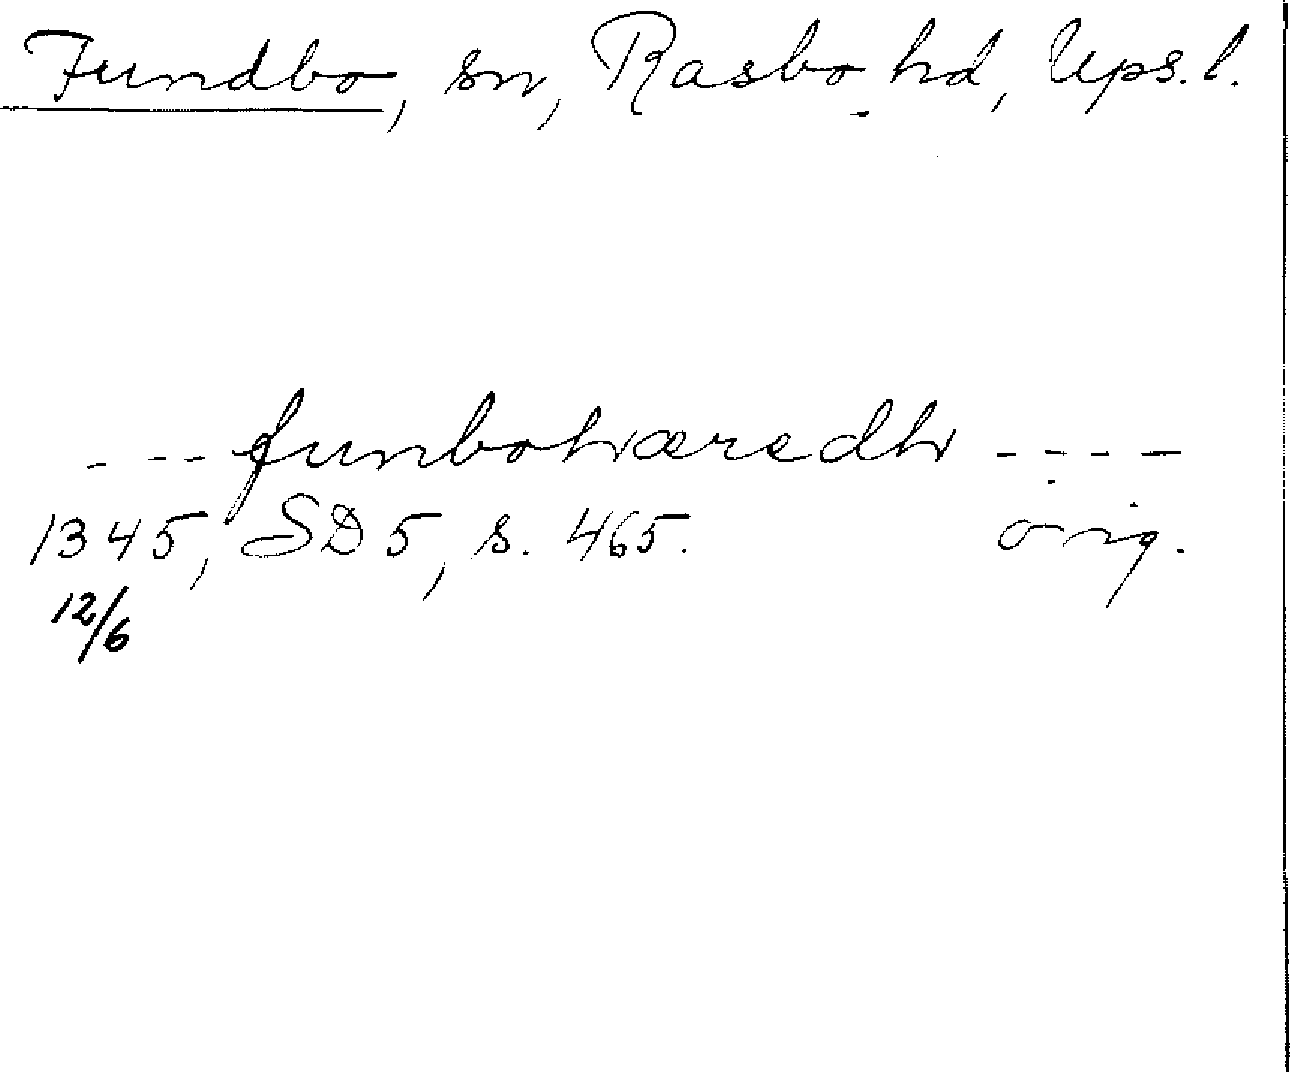 Fundbo, sn, Rasbo hd, Ups. l.
- -- funbohæredh ----
1345, SD 5, s. 465. orig.
12/6